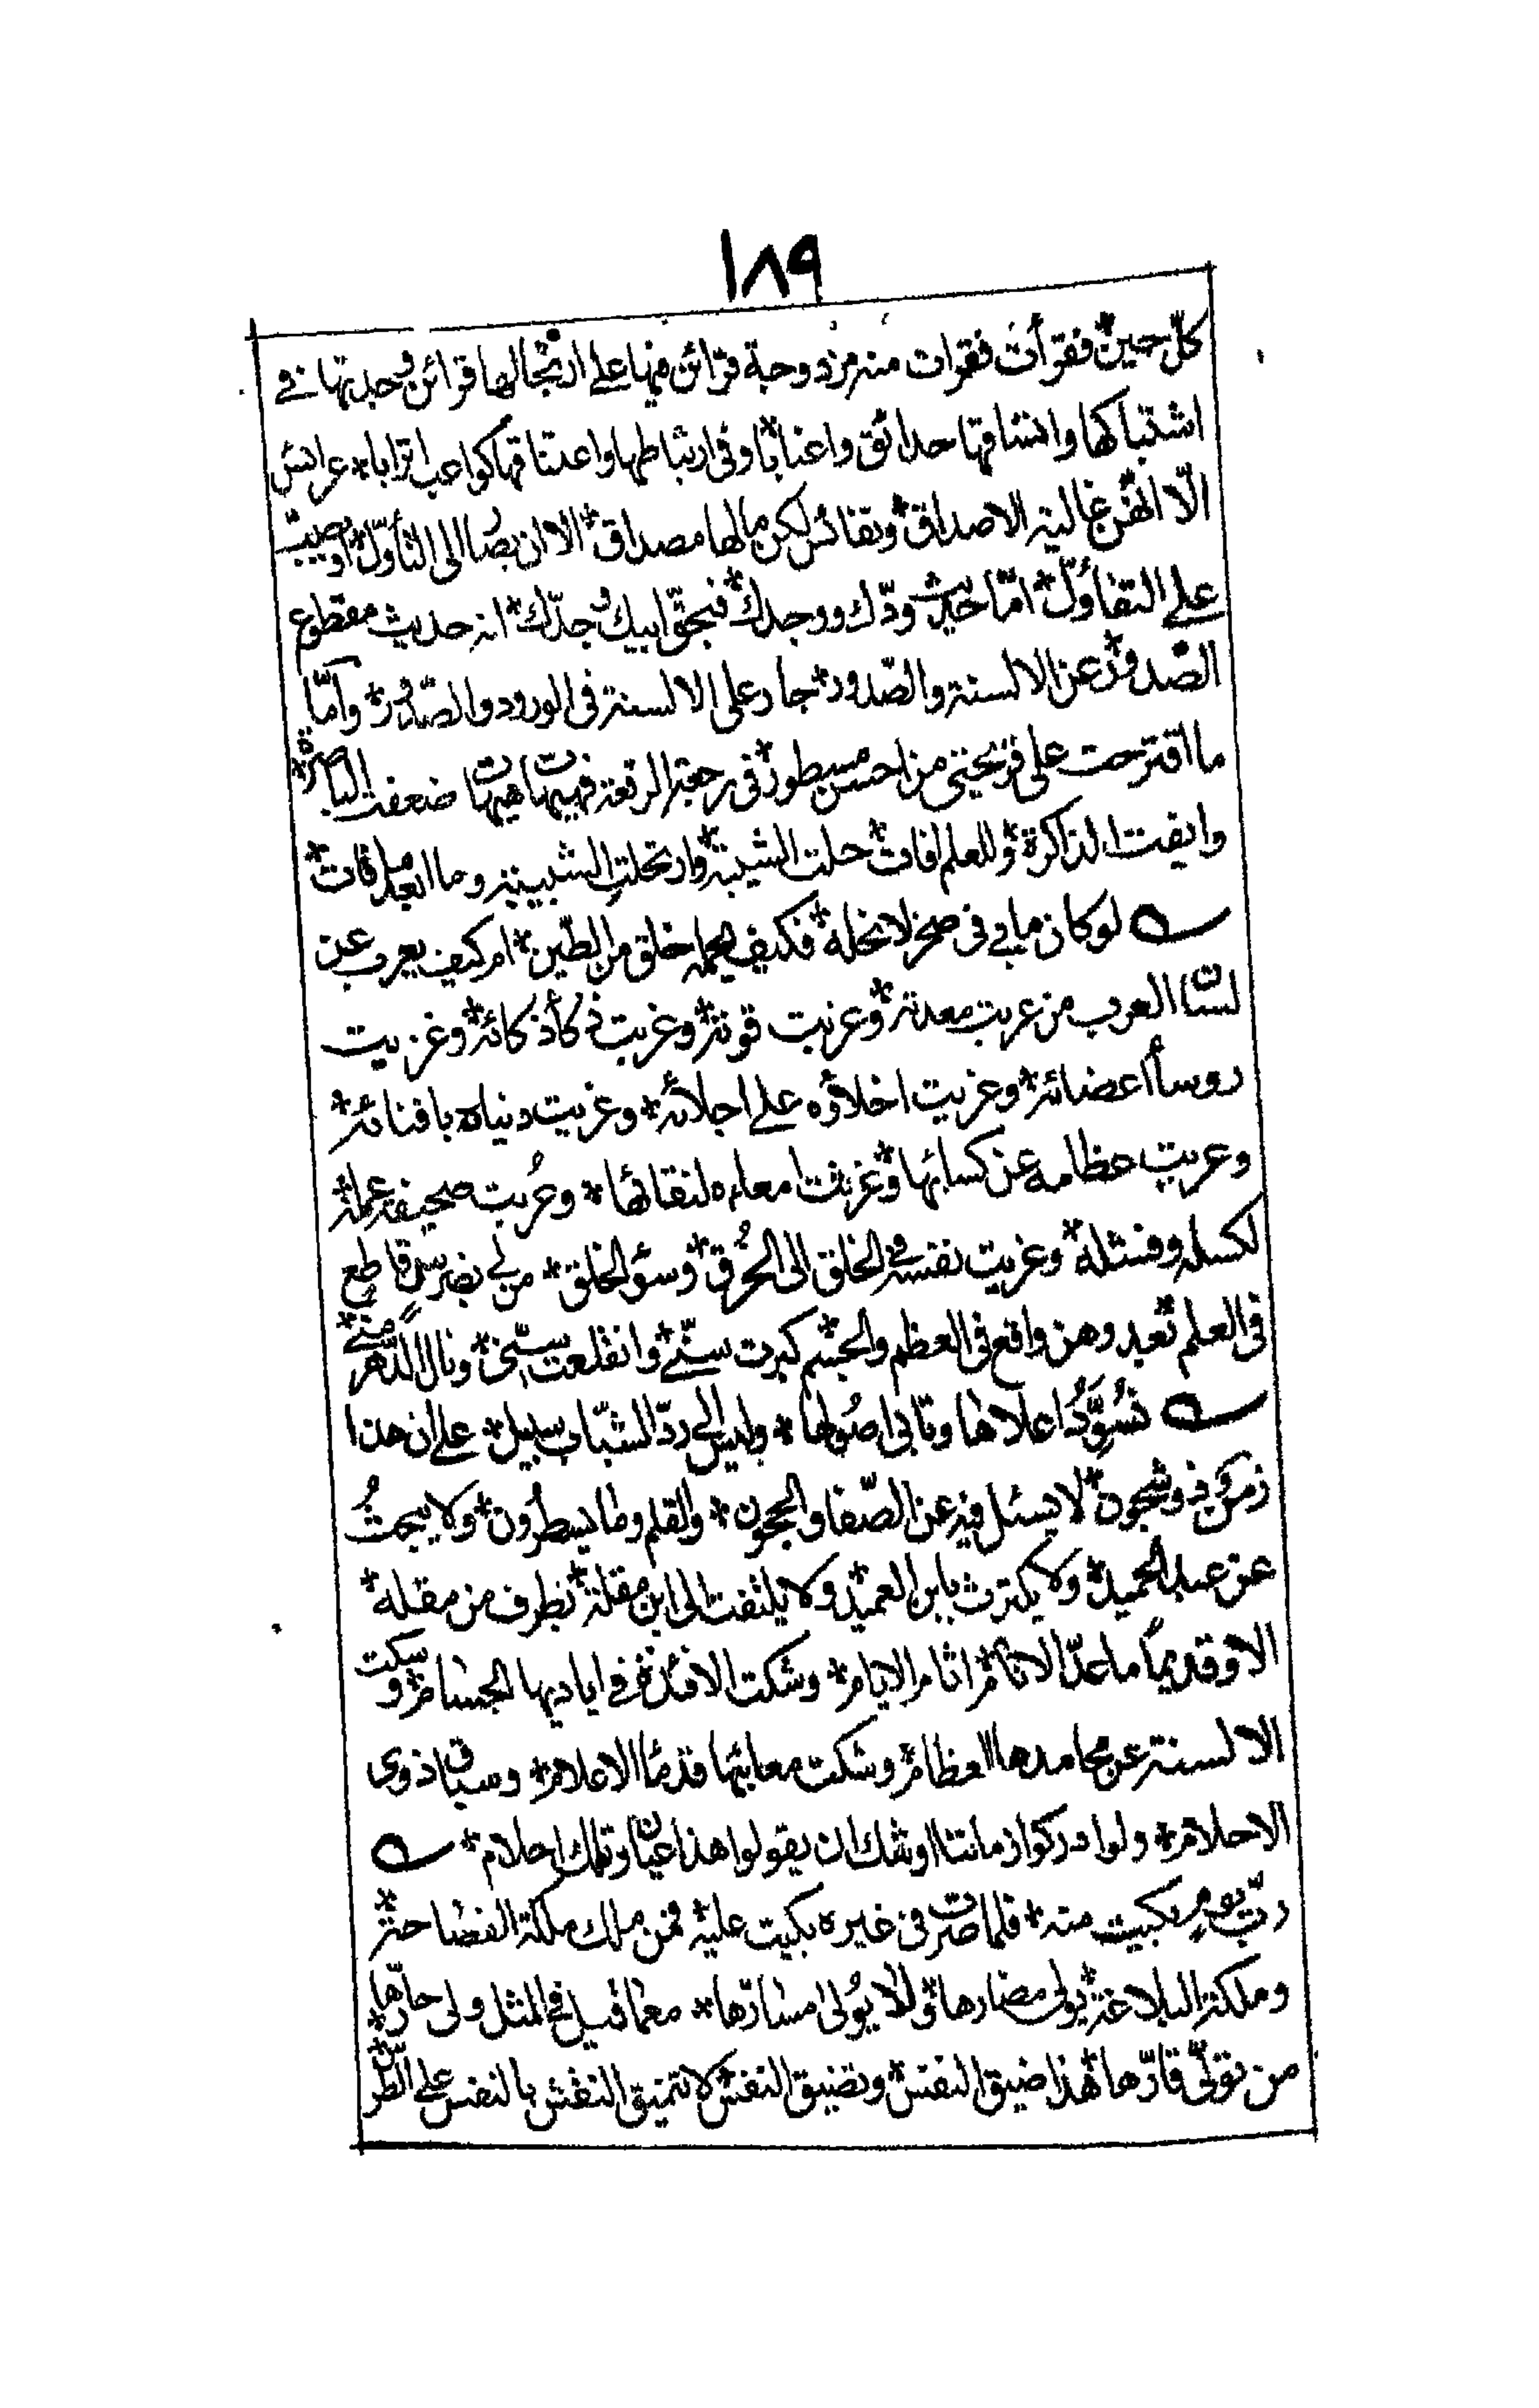 ١٨٩
كلّ حين فقرأت فقرات منه مزدوجة قرائن فيها على ارتجالها قرائن وجدتها في
اشتباكها واتساقها حدائق واعنابا وفى ارتباطها واعتناقها كواعب اترابا * عرائس
الّا انهّن غالية الاصداق * ونفائس لكن ما لها مصداق * الا ان يصُا الى التأوّل * او يصيب
على التفاؤل * امّا حديث ودّك ووجدك * فبحقّ ابيك وجدّك * انه حديث مقطوع
الصّدور * عن الالسنة والصّدور * جار على الالسنة فى الورود والصّدور * وامّا
ما اقترحت على قريحتى من احسن مسطور * فى رجعة الرقعة فهيهات هيهات ضعفت الباصرة *
وايفت الذاكرة * وللعلم افات * حلت الشيبة * وارتحلت الشبيبة وما ابعد ما فات *
لو كان ما بي فى صخر لانحله * فكيف يحمله خلق من الطّين * ام كيف يعرب عن
لسان العرب من عربت معدته * وعزبت قوته * وغربت ذكأ ذكائه * وغزيت
روسأ اعضائه * وعزيت اخلاؤه على اجلائه * وغريت دنياه بافنائه *
وعريت عظامه عن كسائها * وغرثت امعاءه لنقائها * وعُريت صحيفة عمله
لكسله وفشله * وغريت نفسه فى الخلق الى الخُرق * وسؤ الخلق * من لي بضرس قاطع
فى العلم بعد وهن واقع فى العظم والجسم كبرت سنّي * وانقلعت سنّى * ونال الدّهر منّي *
تسُوَّدُ اعلاها وتابى اصُولها * وليس الى ردّ الشباب سبيل * على ان هذا
زمن ذو شجون * لا يسئل فيه عن الصّفا والحجون * والقلم وما يسطرُون * ولا يبحثُ
عن عبد الحميد * ولا يكترث بابن العميد * ولا يلتفت الى ابن مقلة * بطرف من مقله *
الا وقديمًا ما عدّ الانام * اثام الايام * وشكت الافئدة فى اياديها الجسام * وسكت
الالسنة عن محامدها العظام * وشكت معائبها قدمًا الاعلام * وسباق ذوى
الاحلام * ولو ادركوا زماننا اوشك ان يقولوا هذا عيان وتلك احلام *
ربّ يوم بكيت منه * فلما صرت فى غيره بكيت عليه * فمن ملك ملكة الفصاحة *
وملكة البلاغة * يولى مضارها * ولا يُولى مسارّها * معما قيل فى المثل ولى حارّها *
من تولّى قارّها * هذا ضيق النفس * وتضيق النفس * لا تنميق النقش بالنقس على الطرس *